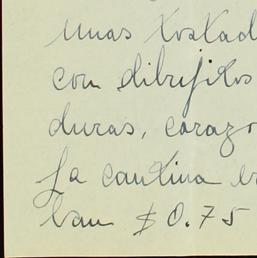 unas tostad
con dibujitos
duras, corazo
La cantina e
ban $0.75